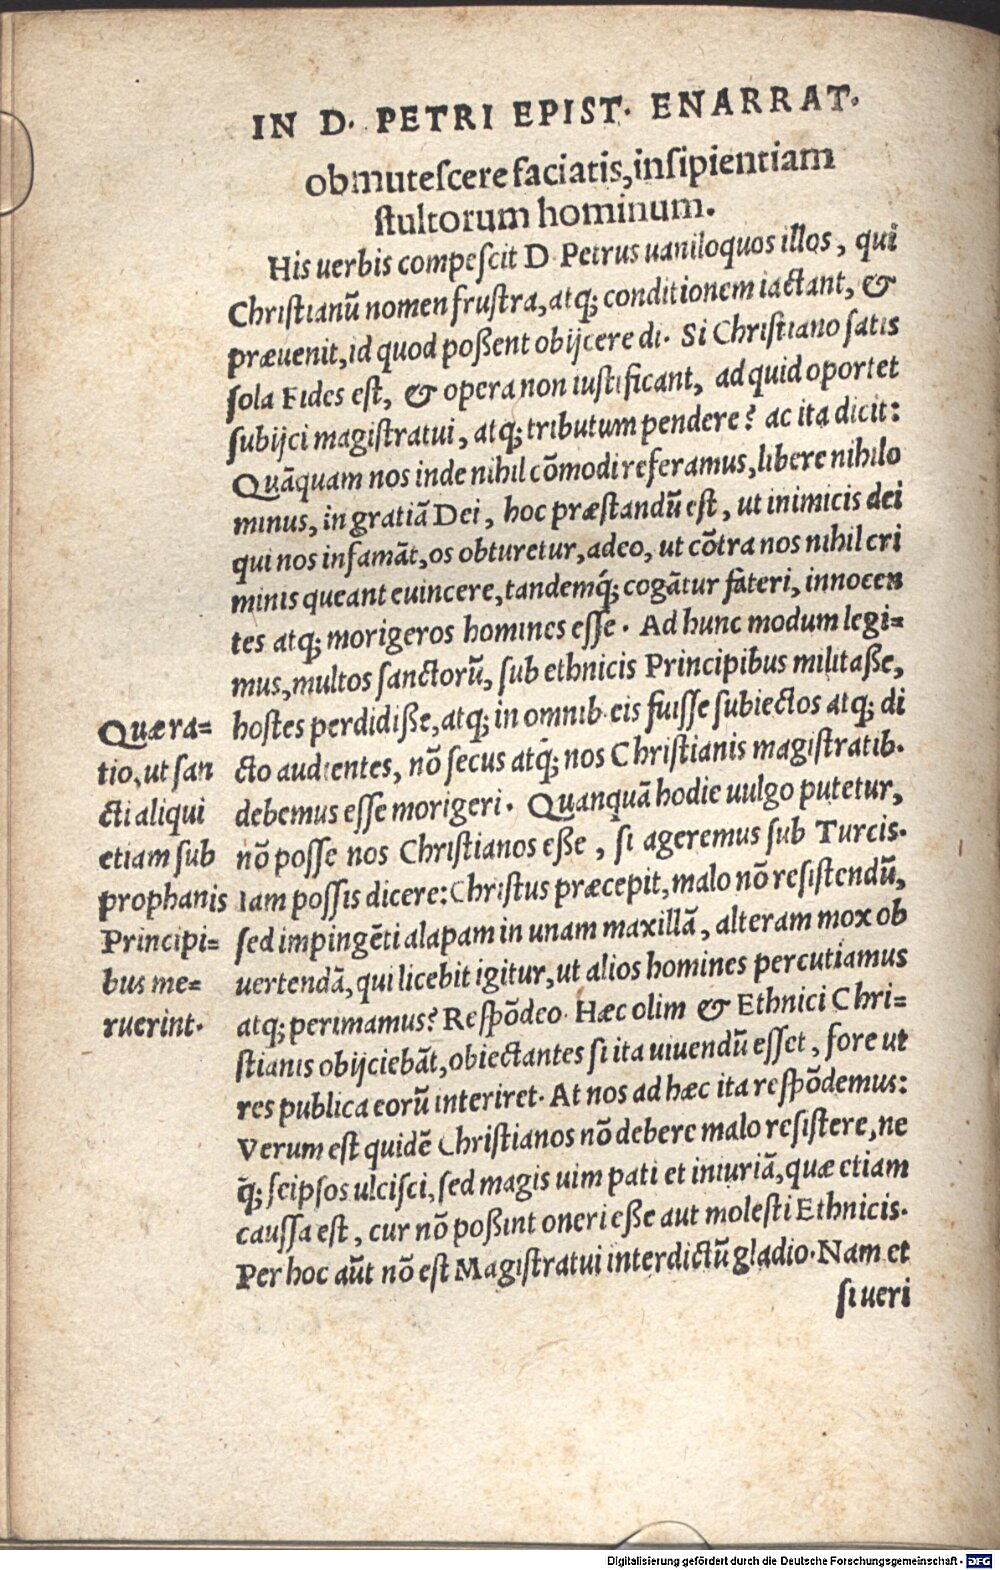 IN D. PETRI EPIST. ENARRAT.
obmuteſcere faciatis, inſipientiam
ſtultorum hominum.
His uerbis compeſcit D Petrus uaniloquos illos, qui
Chriſtianũ nomen fruſtra, atq; conditionem iactant, &
præuenit, id quod poßent obijcere di. Si Chriſtiano ſatis
ſola Fides eſt, & opera non iuſtificant, ad quid oportet
ſubijci magiſtratui, atq; tributum pendere? ac ita dicit:
Quãquam nos inde nihil cõmodi referamus, libere nihilo
minus, in gratiã Dei, hoc præſtandũ eſt, ut inimicis dei
qui nos infamãt, os obturetur, adeo, ut cõtra nos nihil cri
minis queant euincere, tandemq́; cogãtur fateri, innocen
tes atq; morigeros homines eſſe. Ad hunc modum legi=
mus, multos ſanctorũ, ſub ethnicis Principibus militaße,
hoſtes perdidiße, atq; in omnib. eis fuiſſe ſubiectos atq; di
cto audientes, nõ ſecus atq́; nos Chriſtianis magiſtratib.
debemus eſſe morigeri. Quanquã hodie uulgo putetur,
nõ poſſe nos Chriſtianos eße, ſi ageremus ſub Turcis.
Iam poſſis dicere: Chriſtus præcepit, malo nõ reſiſtendũ,
ſed impingẽti alapam in unam maxillã, alteram mox ob
uertendã, qui licebit igitur, ut alios homines percutiamus
atq; perimamus? Reſpõdeo. Hæc olim & Ethnici Chri=
ſtianis obijciebãt, obiectantes ſi ita uiuendũ eſſet, fore ut
res publica eorũ interiret. At nos ad hæc ita reſpõdemus:
Verum eſt quidẽ Chriſtianos nõ debere malo reſiſtere, ne
q́; ſeipſos ulciſci, ſed magis uim pati et iniuriã, quæ etiam
cauſſa eſt, cur nõ poßint oneri eße aut moleſti Ethnicis.
Per hoc aũt nõ eſt Magiſtratui interdictũ gladio. Nam et
ſi ueri
Quæra=
tio, ut ſan
cti aliqui
etiam ſub
prophanis
Principi=
bus me=
ruerint.
Digitalisierung gefördert durch die Deutsche Forschungsgemeinschaft - DFG